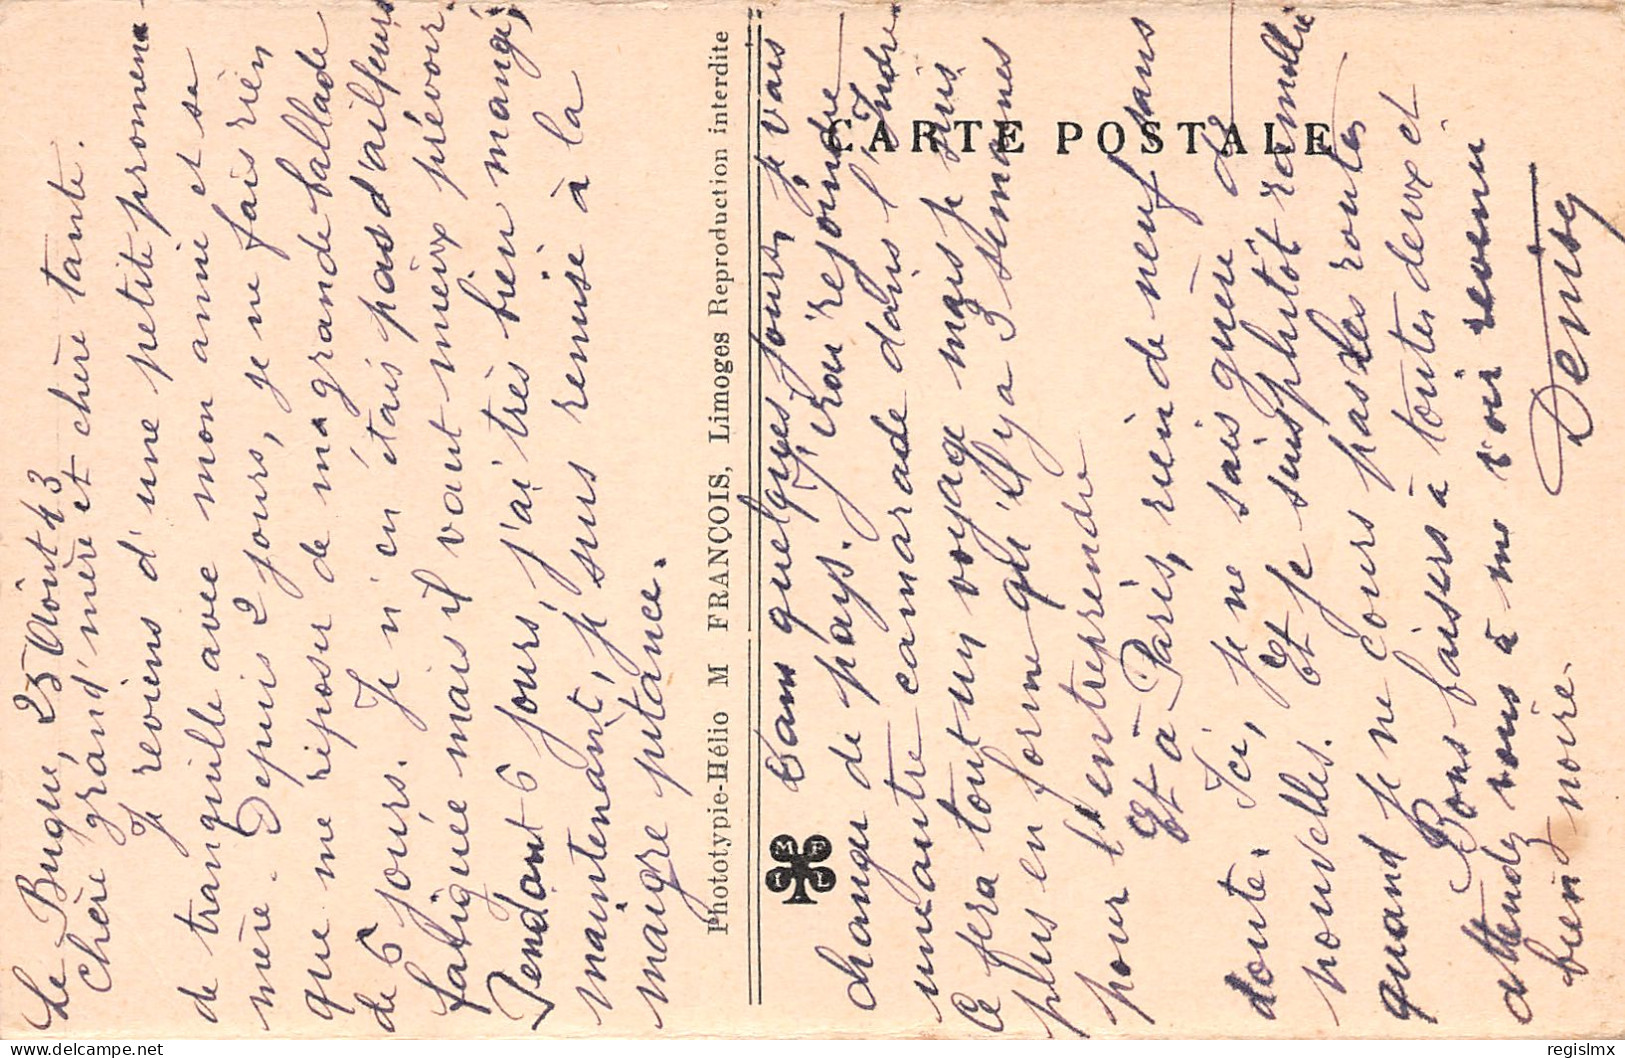 Le Bugue, 25 Août 43
Chère grand'mère et chère tante.
Je reviens d'une petite promena-
de tranquille avec mon amie et sa
mère. Depuis 2 jours, je ne fais rien
que me reposer de ma grande ballade
de 6 jours. Je n'en étais pas d'ailleurs
fatiguée mais il vaut mieux prévoir.
Pendant 6 jours, j'ai très bien mangé,
maintenant, je suis remise à la
maigre pitance.
Phototypie-Hélio M FRANÇOIS, Limoges Reproduction interdite
CARTE POSTALE
M F I L
Dans quelques jours, je vais
changer de pays. J'irai rejoindre
une autre camarade dans l'Indre
Ce sera tout un voyage mais je suis
plus en forme qu'il y a 3 semaines
pour l'entreprendre
Et à Paris, rien de neuf sans
doute. Ici, je ne sais guère de
nouvelles. Et je suis plutôt ramollie
quand je ne cours pas les routes
Bons baisers à toutes deux et
attendez vous à me voir revenir
bien noire.
Denise
regislmx